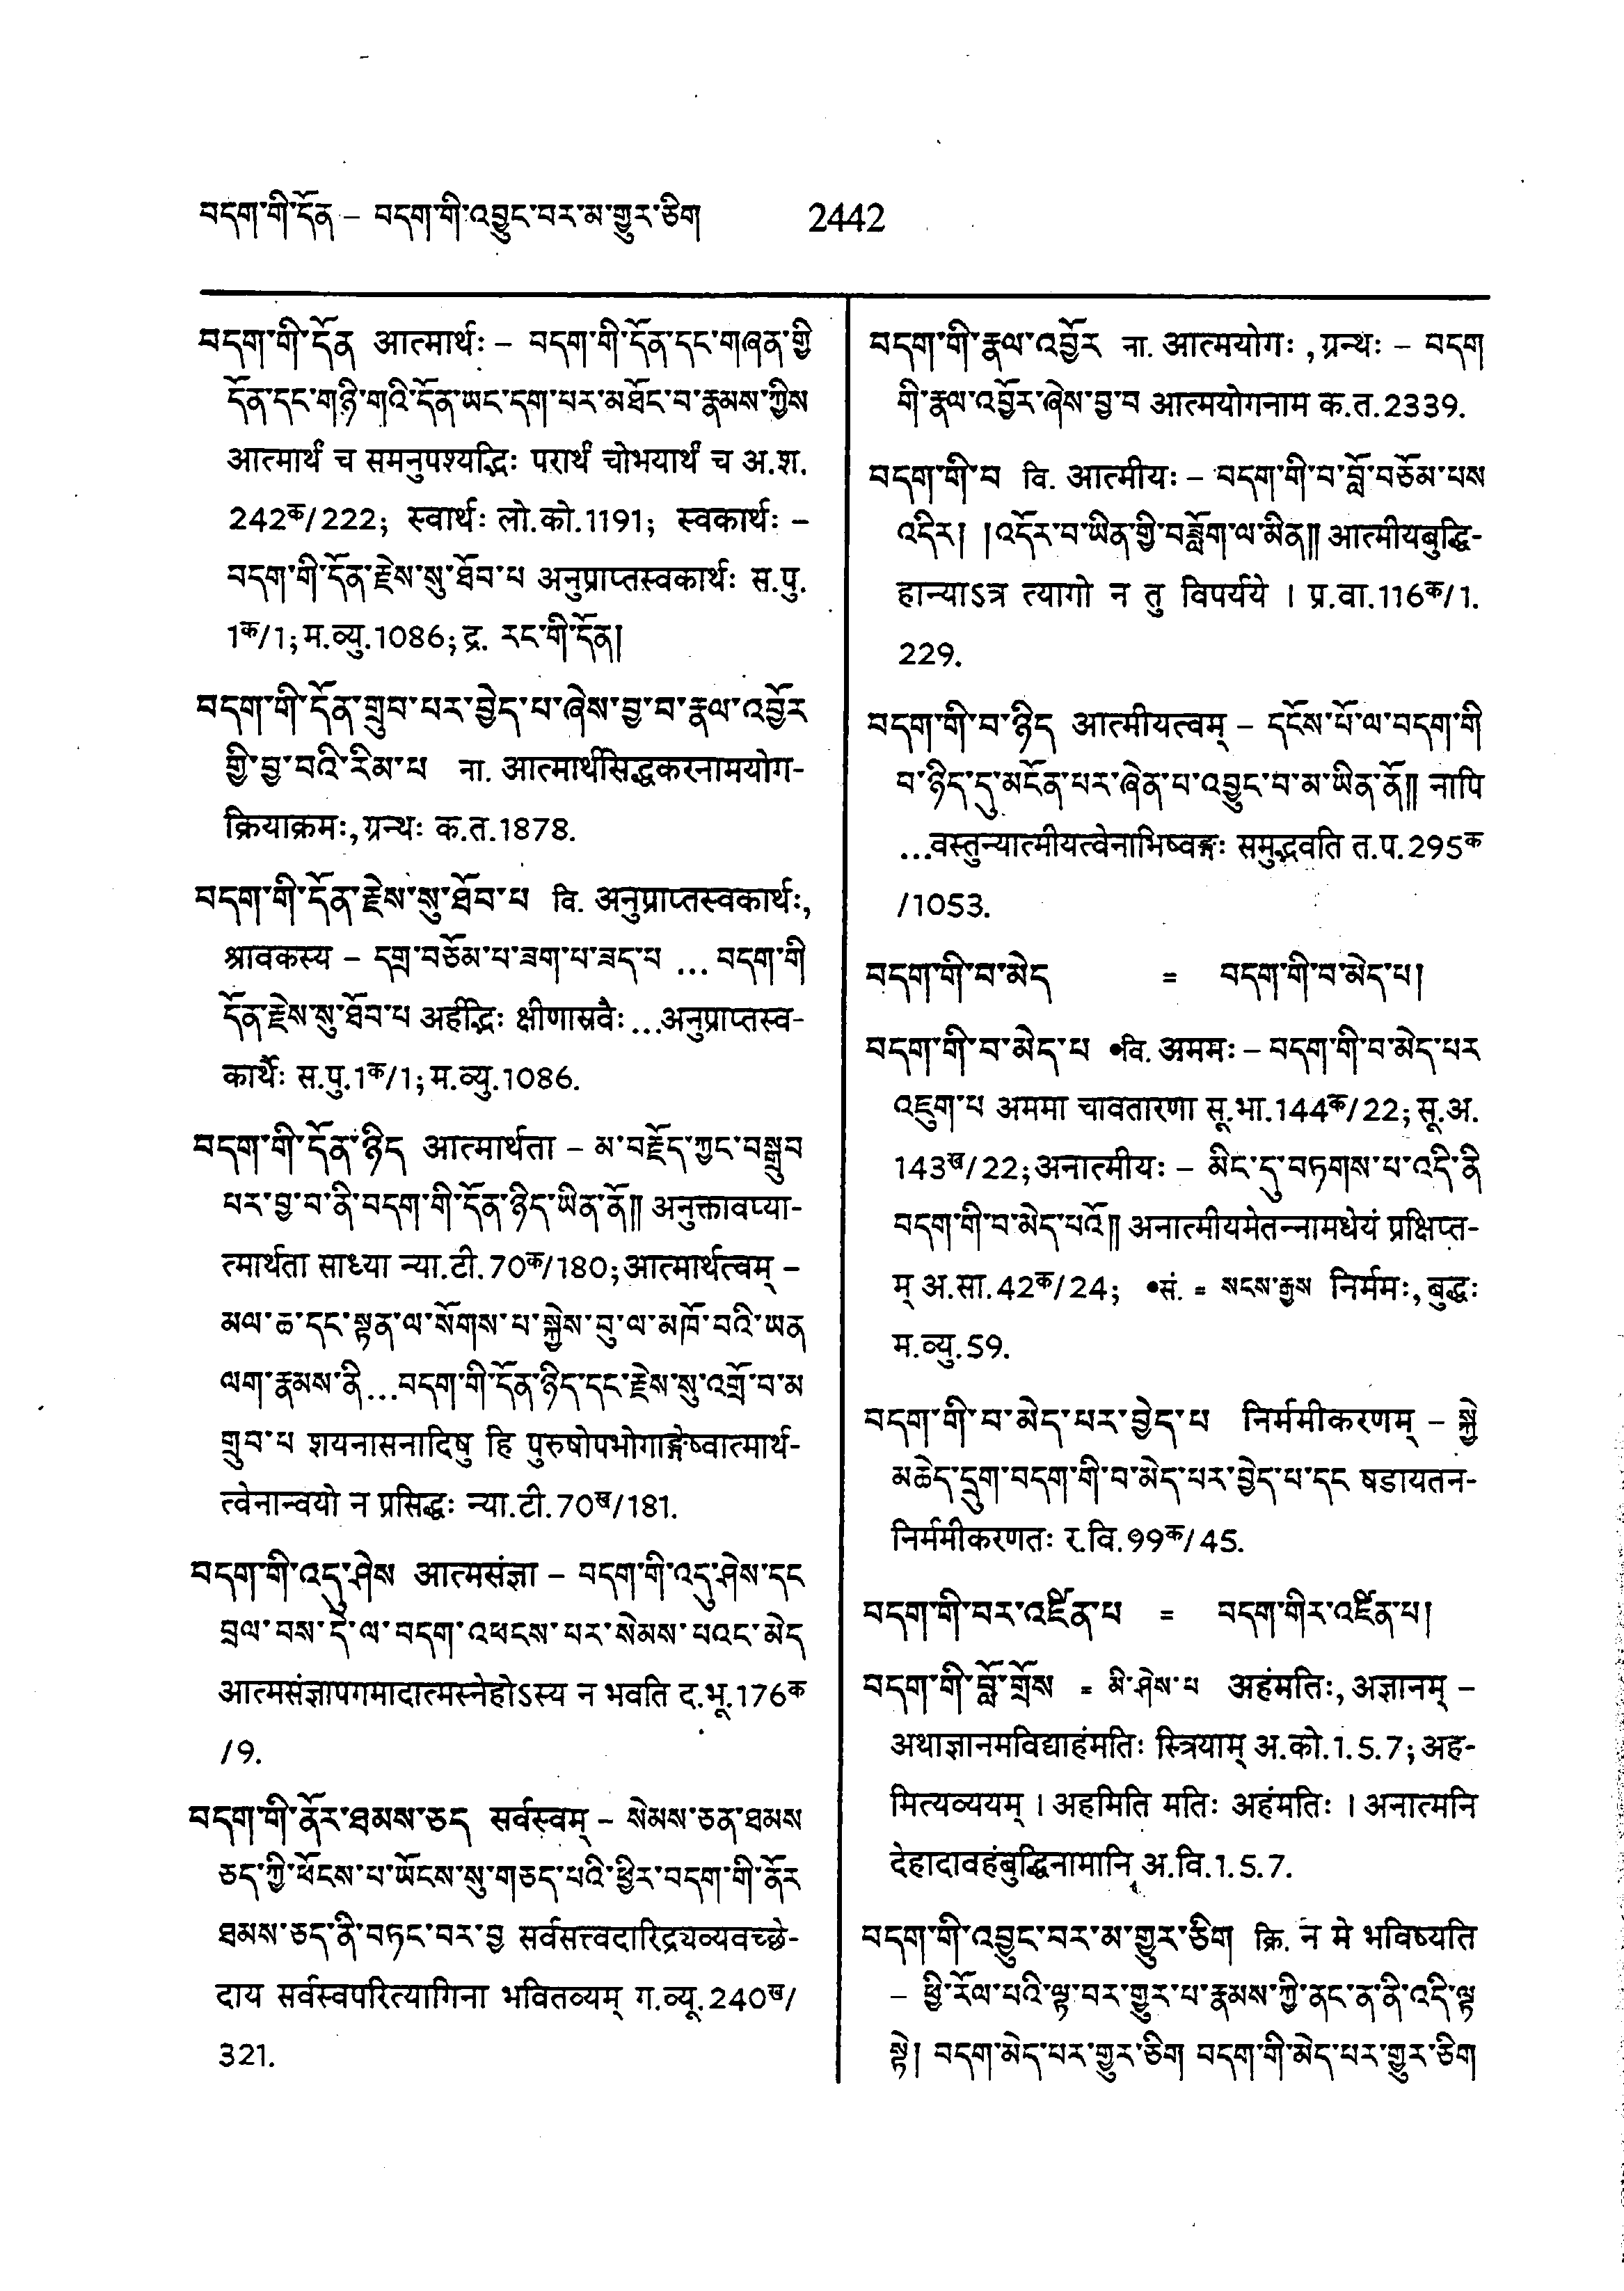 བདག་གི་དོན – བདག་གི་འབྱུང་བར་མ་གྱུར་ཅིག 2442
བདག་གི་དོན आत्मार्थः – བདག་གི་དོན་དང་གཞན་གྱི
དོན་དང་གཉི་གའི་དོན་ཡང་དག་པར་མཐོང་བ་རྣམས་ཀྱིས
आत्मार्थं च समनुपश्यद्भिः परार्थं चोभयार्थं च अ.श.
242क/222; स्वार्थः लो.को.1191; स्वकार्थः –
བདག་གི་དོན་རྗེས་སུ་ཐོབ་པ अनुप्राप्तस्वकार्थः स.पु.
1क/1; म.व्यु.1086; द्र. རང་གི་དོན།
བདག་གི་དོན་གྲུབ་པར་བྱེད་པ་ཞེས་བྱ་བ་རྣལ་འབྱོར
གྱི་བྱ་བའི་རིམ་པ ना. आत्मार्थसिद्धकरनामयोग-
क्रियाक्रमः, ग्रन्थः क.त.1878.
བདག་གི་དོན་རྗེས་སུ་ཐོབ་པ वि. अनुप्राप्तस्वकार्थः,
श्रावकस्य – དགྲ་བཅོམ་པ་ཟག་པ་ཟད་པ ... བདག་གི
དོན་རྗེས་སུ་ཐོབ་པ अर्हद्भिः क्षीणास्रवैः ...अनुप्राप्तस्व-
कार्थैः स.पु.1क/1; म.व्यु.1086.
བདག་གི་དོན་ཉིད आत्मार्थता – མ་བརྗོད་ཀྱང་བསྒྲུབ
པར་བྱ་བ་ནི་བདག་གི་དོན་ཉིད་ཡིན་ནོ།། अनुक्तावप्या-
त्मार्थता साध्या न्या.टी.70क/180; आत्मार्थत्वम् –
མལ་ཆ་དང་སྟན་ལ་སོགས་པ་སྐྱེས་བུ་ལ་མཁོ་བའི་ཡན
ལག་རྣམས་ནི...བདག་གི་དོན་ཉིད་དང་རྗེས་སུ་འགྲོ་བ་མ
གྲུབ་པ शयनासनादिषु हि पुरुषोपभोगाङ्गेष्वात्मार्थ-
त्वेनान्वयो न प्रसिद्धः न्या.टी.70ख/181.
བདག་གི་འདུ་ཤེས आत्मसंज्ञा – བདག་གི་འདུ་ཤེས་དང
བྲལ་བས་དེ་ལ་བདག་འཕངས་པར་སེམས་པའང་མེད
आत्मसंज्ञापगमादात्मस्नेहोऽस्य न भवति द.भू.176क
/9.
བདག་གི་ནོར་ཐམས་ཅད सर्वस्वम् – སེམས་ཅན་ཐམས
ཅད་ཀྱི་ཕོངས་པ་ཡོངས་སུ་གཅད་པའི་ཕྱིར་བདག་གི་ནོར
ཐམས་ཅད་ནི་བཏང་བར་བྱ सर्वसत्त्वदारिद्र्यव्यवच्छे-
दाय सर्वस्वपरित्यागिना भवितव्यम् ग.व्यू.240ख/
321.
བདག་གི་རྣལ་འབྱོར ना. आत्मयोगः, ग्रन्थः – བདག
གི་རྣལ་འབྱོར་ཞེས་བྱ་བ आत्मयोगनाम क.त.2339.
བདག་གི་བ वि. आत्मीयः – བདག་གི་བ་བློ་བཅོམ་པས
འདིར། །འདོར་བ་ཡིན་གྱི་བཟློག་ལ་མིན།། आत्मीयबुद्धि-
हान्याऽत्र त्यागो न तु विपर्यये । प्र.वा.116क/1.
229.
བདག་གི་བ་ཉིད आत्मीयत्वम् – དངོས་པོ་ལ་བདག་གི
བ་ཉིད་དུ་མངོན་པར་ཞེན་པ་འབྱུང་བ་མ་ཡིན་ནོ།། नापि
...वस्तुन्यात्मीयत्वेनाभिष्वङ्गः समुद्भवति त.प.295क
/1053.
བདག་གི་བ་མེད = བདག་གི་བ་མེད་པ།
བདག་གི་བ་མེད་པ •वि. अममः – བདག་གི་བ་མེད་པར
འཇུག་པ अममा चावतारणा सू.भा.144क/22; सू.अ.
143ख/22; अनात्मीयः – མིང་དུ་བཏགས་པ་འདི་ནི
བདག་གི་བ་མེད་པའོ།། अनात्मीयमेतन्नामधेयं प्रक्षिप्त-
म् अ.सा.42क/24; •सं. = སངས་རྒྱས निर्ममः, बुद्धः
म.व्यु.59.
བདག་གི་བ་མེད་པར་བྱེད་པ निर्ममीकरणम् – སྐྱེ
མཆེད་དྲུག་བདག་གི་བ་མེད་པར་བྱེད་པ་དང षडायतन-
निर्ममीकरणतः र.वि.99क/45.
བདག་གི་བར་འཛིན་པ = བདག་གིར་འཛིན་པ།
བདག་གི་བློ་གྲོས = མི་ཤེས་པ अहंमतिः, अज्ञानम् –
अथाज्ञानमविद्याहंमतिः स्त्रियाम् अ.को.1.5.7; अह-
मित्यव्ययम् । अहमिति मतिः अहंमतिः । अनात्मनि
देहादावहंबुद्धिनामानि अ.वि.1.5.7.
བདག་གི་འབྱུང་བར་མ་གྱུར་ཅིག क्रि. न मे भविष्यति
– ཕྱི་རོལ་པའི་ལྟ་བར་གྱུར་པ་རྣམས་ཀྱི་ནང་ན་ནི་འདི་ལྟ
སྟེ། བདག་མེད་པར་གྱུར་ཅིག བདག་གི་མེད་པར་གྱུར་ཅིག